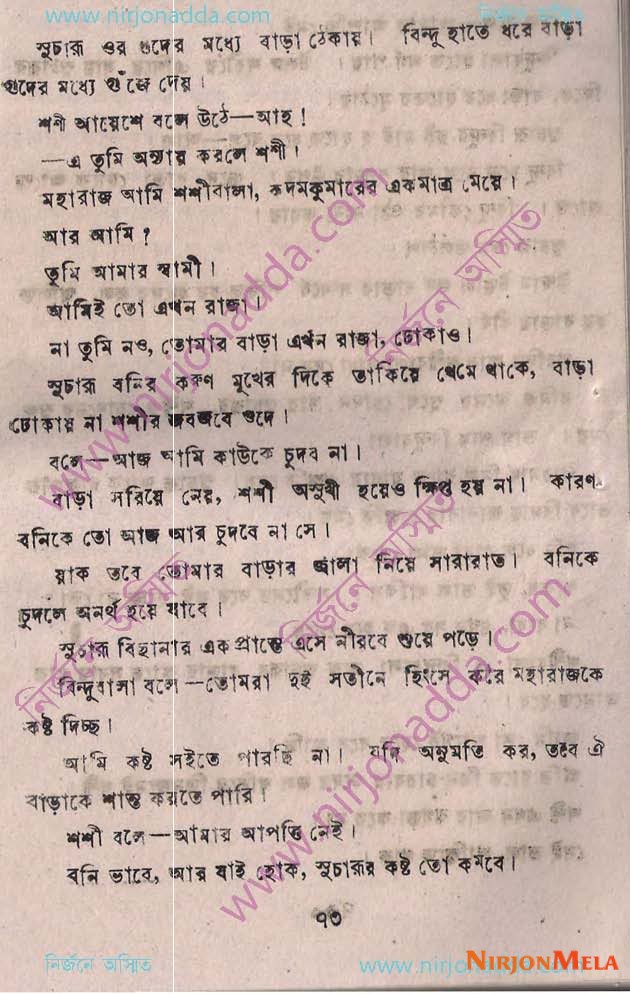 www.nirjonadda.com
নির্জনে অস্মিত
সুচারু ওর গুদের মধ্যে বাড়া ঠেকায়। বিন্দু হাতে ধরে বাড়া
গুদের মধ্যে গুঁজে দেয়।
শশী আয়েশে বলে উঠে—আহ!
—এ তুমি অন্যায় করলে শশী।
মহারাজ আমি শশীবালা, কদমকুমারের একমাত্র মেয়ে।
আর আমি?
তুমি আমার স্বামী।
আমিই তো এখন রাজা।
না তুমি নও, তোমার বাড়া এখন রাজা, ঢোকাও।
সুচারু বনির করুণ মুখের দিকে তাকিয়ে থেমে থাকে, বাড়া
ঢোকায় না শশীর জবজবে গুদে।
বলে—আজ আমি কাউকে চুদব না।
বাড়া সরিয়ে নেয়, শশী অসুখী হয়েও ক্ষিপ্ত হয় না। কারণ
বনিকে তো আজ আর চুদবে না সে।
য়াক তবে তোমার বাড়ার জ্বালা নিয়ে সারারাত। বনিকে
চুদলে অনর্থ হয়ে যাবে।
সুচারু বিছানার এক প্রান্তে এসে নীরবে শুয়ে পড়ে।
বিন্দুবালা বলে—তোমরা দুই সতীনে হিংসে করে মহারাজকে
কষ্ট দিচ্ছ।
আমি কষ্ট সইতে পারছি না। যদি অনুমতি কর, তবে ঐ
বাড়াকে শান্ত করতে পারি!
শশী বলে—আমার আপত্তি নেই।
বনি ভাবে, আর যাই হোক, সুচারুর কষ্ট তো কমবে।
৭৩
www.nirjonadda.com
নির্জনে অস্মিত
www.nirjonadda.com
নির্জনে অস্মিত
নির্জনে অস্মিত
নির্জনে অস্মিত
www.nirjonadda.com
NIRJONMELA